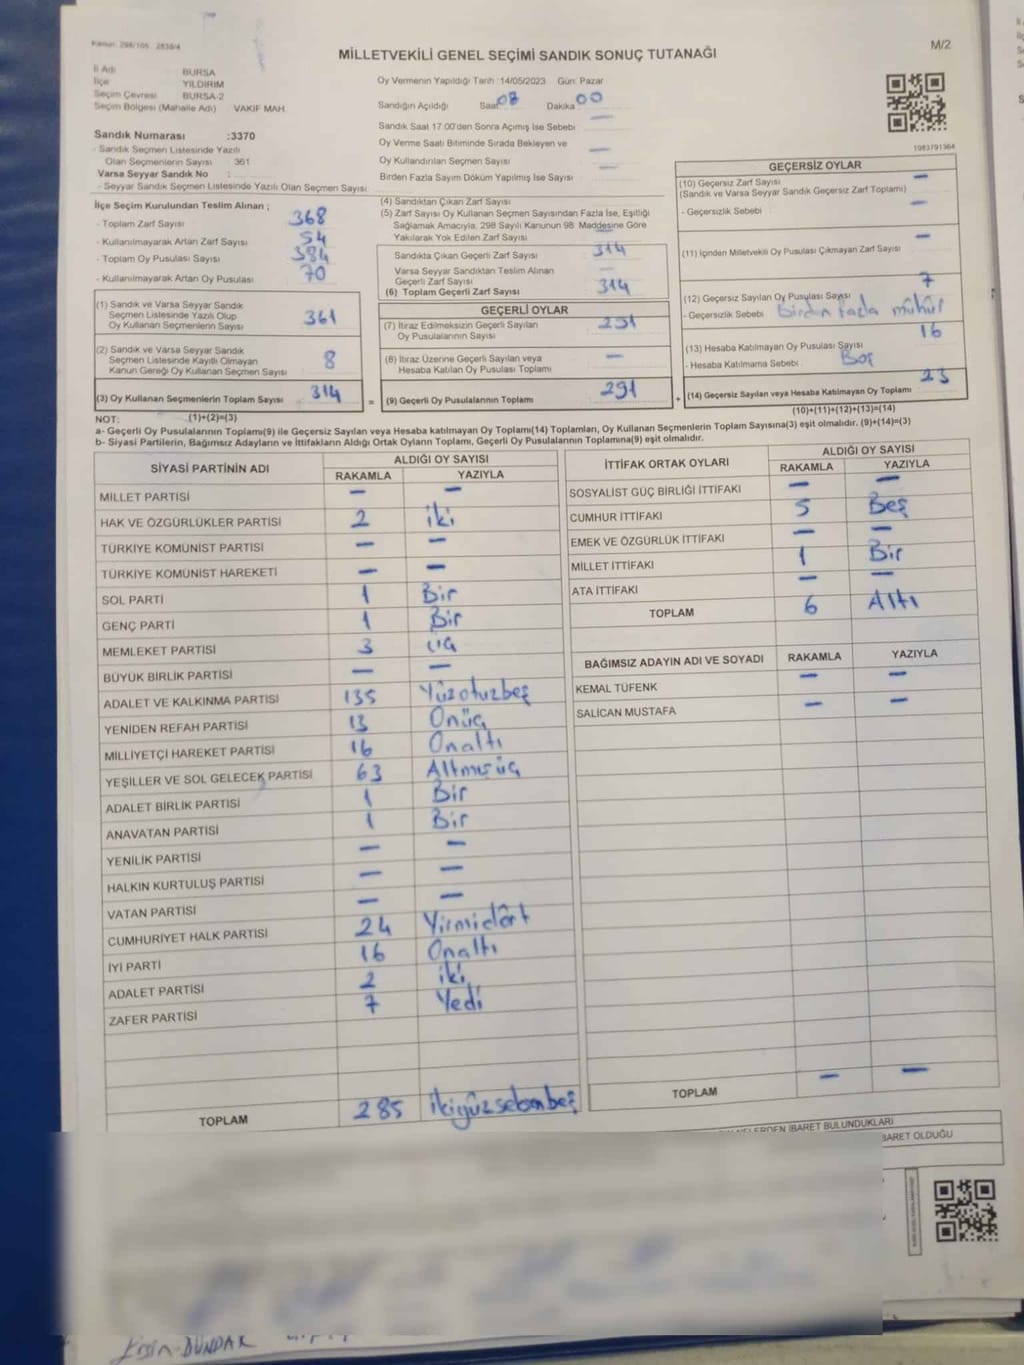 Kanun: 298/105 2839/4
M/2
MİLLETVEKİLİ GENEL SEÇİMİ SANDIK SONUÇ TUTANAĞI
İl Adı BURSA
İlçe YILDIRIM
Seçim Çevresi BURSA-2
Seçim Bölgesi (Mahalle Adı) VAKIF MAH.
Sandık Numarası :3370
- Sandık Seçmen Listesinde Yazılı
Olan Seçmenlerin Sayısı : 361
Varsa Seyyar Sandık No :
- Seyyar Sandık Seçmen Listesinde Yazılı Olan Seçmen Sayısı :
Oy Vermenin Yapıldığı Tarih :14/05/2023 Gün: Pazar
Sandığın Açıldığı Saat 08 Dakika 00
Sandık Saat 17:00'den Sonra Açılmış İse Sebebi —
Oy Verme Saati Bitiminde Sırada Bekleyen ve
Oy Kullandırılan Seçmen Sayısı —
Birden Fazla Sayım Döküm Yapılmış İse Sayısı —
1083791364
İlçe Seçim Kurulundan Teslim Alınan ;
- Toplam Zarf Sayısı 368
- Kullanılmayarak Artan Zarf Sayısı 54
- Toplam Oy Pusulası Sayısı 384
- Kullanılmayarak Artan Oy Pusulası 70
(1) Sandık ve Varsa Seyyar Sandık
Seçmen Listesinde Yazılı Olup
Oy Kullanan Seçmenlerin Sayısı 361
(2) Sandık ve Varsa Seyyar Sandık
Seçmen Listesinde Kayıtlı Olmayan
Kanun Gereği Oy Kullanan Seçmen Sayısı 8
(3) Oy Kullanan Seçmenlerin Toplam Sayısı 314
(4) Sandıktan Çıkan Zarf Sayısı
(5) Zarf Sayısı Oy Kullanan Seçmen Sayısından Fazla İse, Eşitliği
Sağlamak Amacıyla, 298 Sayılı Kanunun 98. Maddesine Göre
Yakılarak Yok Edilen Zarf Sayısı —
Sandıkta Çıkan Geçerli Zarf Sayısı 314
Varsa Seyyar Sandıktan Teslim Alınan
Geçerli Zarf Sayısı —
(6) Toplam Geçerli Zarf Sayısı 314
GEÇERLİ OYLAR
(7) İtiraz Edilmeksizin Geçerli Sayılan
Oy Pusulalarının Sayısı 291
(8) İtiraz Üzerine Geçerli Sayılan veya
Hesaba Katılan Oy Pusulası Toplamı —
= (9) Geçerli Oy Pusulalarının Toplamı 291
GEÇERSİZ OYLAR
(10) Geçersiz Zarf Sayısı
(Sandık ve Varsa Seyyar Sandık Geçersiz Zarf Toplamı) —
- Geçersizlik Sebebi —
(11) İçinden Milletvekili Oy Pusulası Çıkmayan Zarf Sayısı —
(12) Geçersiz Sayılan Oy Pusulası Sayısı 7
- Geçersizlik Sebebi Birden fazla mühür
(13) Hesaba Katılmayan Oy Pusulası Sayısı 16
- Hesaba Katılmama Sebebi Boş
+ (14) Geçersiz Sayılan veya Hesaba Katılmayan Oy Toplamı 23
NOT: (1)+(2)=(3) (10)+(11)+(12)+(13)=(14)
a- Geçerli Oy Pusulalarının Toplamı(9) ile Geçersiz Sayılan veya Hesaba katılmayan Oy Toplamı(14) Toplamları, Oy Kullanan Seçmenlerin Toplam Sayısına(3) eşit olmalıdır. (9)+(14)=(3)
b- Siyasi Partilerin, Bağımsız Adayların ve İttifakların Aldığı Ortak Oyların Toplamı, Geçerli Oy Pusulalarının Toplamına(9) eşit olmalıdır.
SİYASİ PARTİNİN ADI ALDIĞI OY SAYISI
RAKAMLA YAZIYLA
MİLLET PARTİSİ — —
HAK VE ÖZGÜRLÜKLER PARTİSİ 2 iki
TÜRKİYE KOMÜNİST PARTİSİ — —
TÜRKİYE KOMÜNİST HAREKETİ — —
SOL PARTİ 1 Bir
GENÇ PARTİ 1 Bir
MEMLEKET PARTİSİ 3 üç
BÜYÜK BİRLİK PARTİSİ — —
ADALET VE KALKINMA PARTİSİ 135 Yüzotuzbeş
YENİDEN REFAH PARTİSİ 13 Onüç
MİLLİYETÇİ HAREKET PARTİSİ 16 Onaltı
YEŞİLLER VE SOL GELECEK PARTİSİ 63 Altmışüç
ADALET BİRLİK PARTİSİ 1 Bir
ANAVATAN PARTİSİ 1 Bir
YENİLİK PARTİSİ — —
HALKIN KURTULUŞ PARTİSİ — —
VATAN PARTİSİ — —
CUMHURİYET HALK PARTİSİ 24 Yirmidört
İYİ PARTİ 16 Onaltı
ADALET PARTİSİ 2 iki
ZAFER PARTİSİ 7 Yedi
TOPLAM 285 ikiyüzseksenbeş
İTTİFAK ORTAK OYLARI ALDIĞI OY SAYISI
RAKAMLA YAZIYLA
SOSYALİST GÜÇ BİRLİĞİ İTTİFAKI — —
CUMHUR İTTİFAKI 5 Beş
EMEK VE ÖZGÜRLÜK İTTİFAKI — —
MİLLET İTTİFAKI 1 Bir
ATA İTTİFAKI — —
TOPLAM 6 Altı
BAĞIMSIZ ADAYIN ADI VE SOYADI RAKAMLA YAZIYLA
KEMAL TÜFENK — —
SALİCAN MUSTAFA — —
TOPLAM — —
İBARET BULUNDUKLARI
İBARET OLDUĞU
DÜNDAR